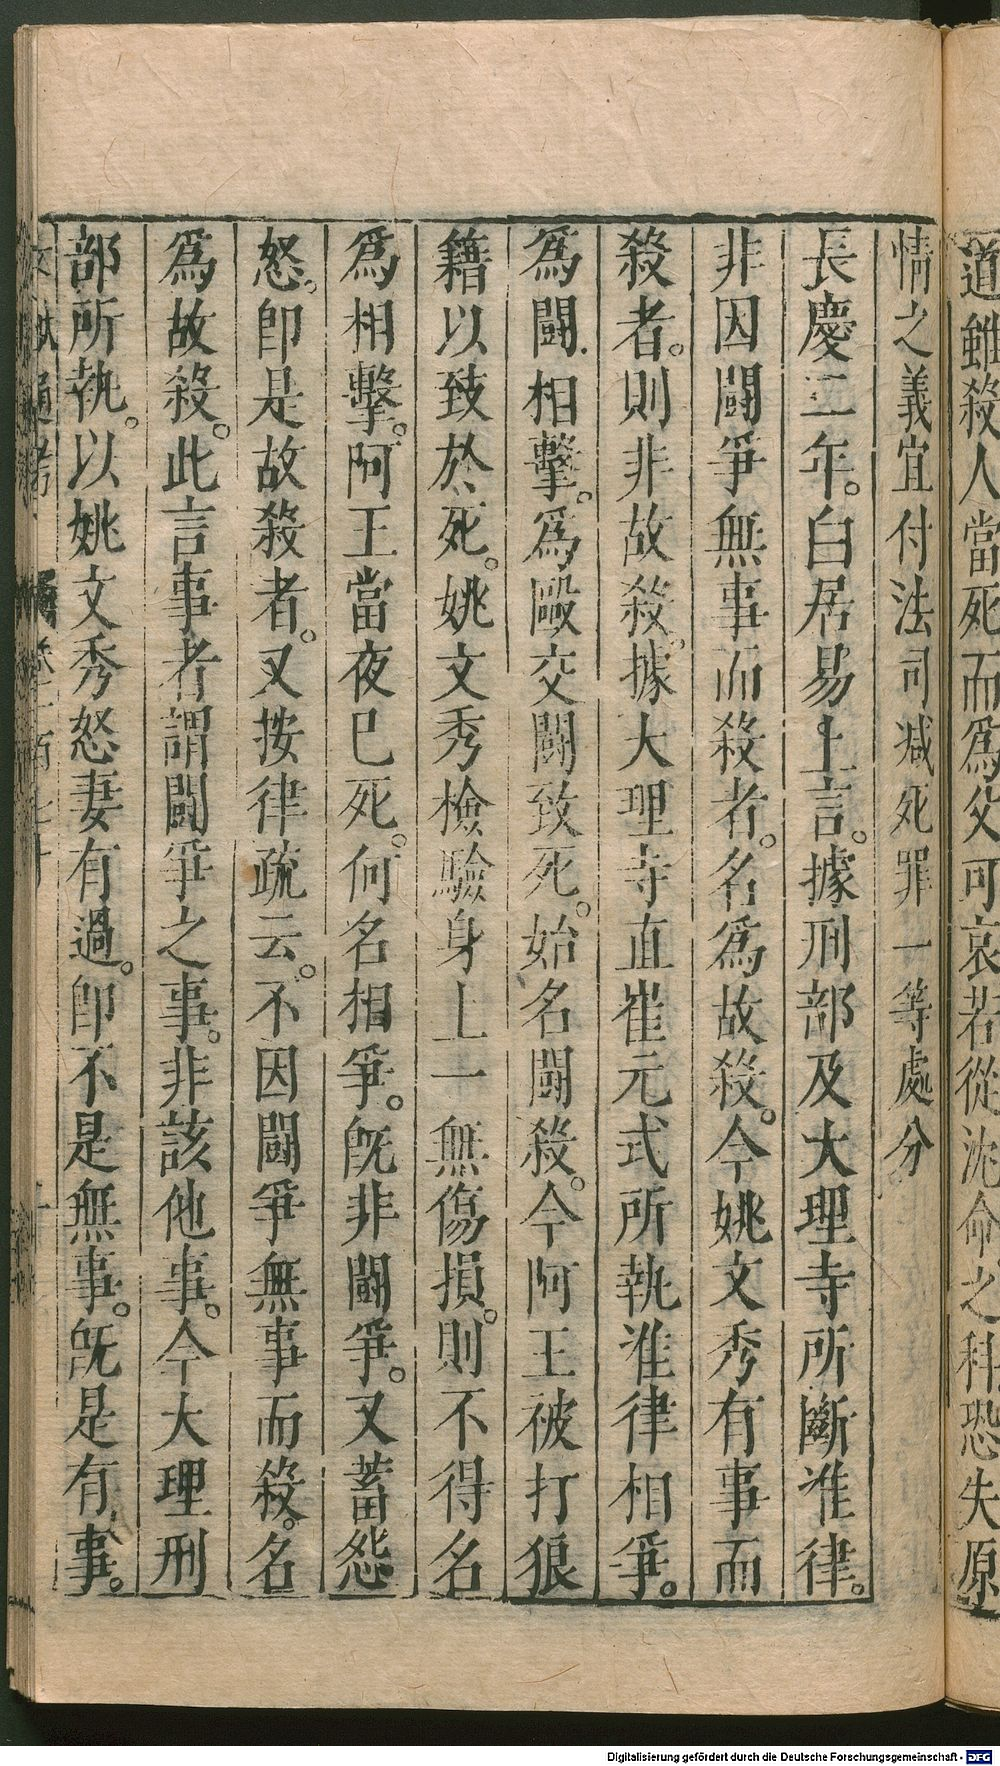 道雖殺人當死而爲父可哀若從沈命之科恐失原
情之義宜付法司减死罪一等處分
長慶二年。白居易上言。據刑部及大理寺所斷准律。
非因鬪爭無事而殺者。名爲故殺。今姚文秀有事而
殺者。則非故殺。據大理寺直崔元式所執准律相爭。
爲鬪相擊。爲毆交鬪致死。始名鬪殺。今阿王被打狼
籍以致於死。姚文秀檢驗身上一無傷損。則不得名
爲相擊。阿王當夜已死。何名相爭。旣非鬪爭。又蓄怨
怒。即是故殺者。又按律疏云。不因鬪爭無事而殺。名
爲故殺。此言事者謂鬪爭之事。非該他事。今大理刑
部所執。以姚文秀怒妻有過。即不是無事。旣是有事。
文獻通考
Digitalisierung gefördert durch die Deutsche Forschungsgemeinschaft - DFG